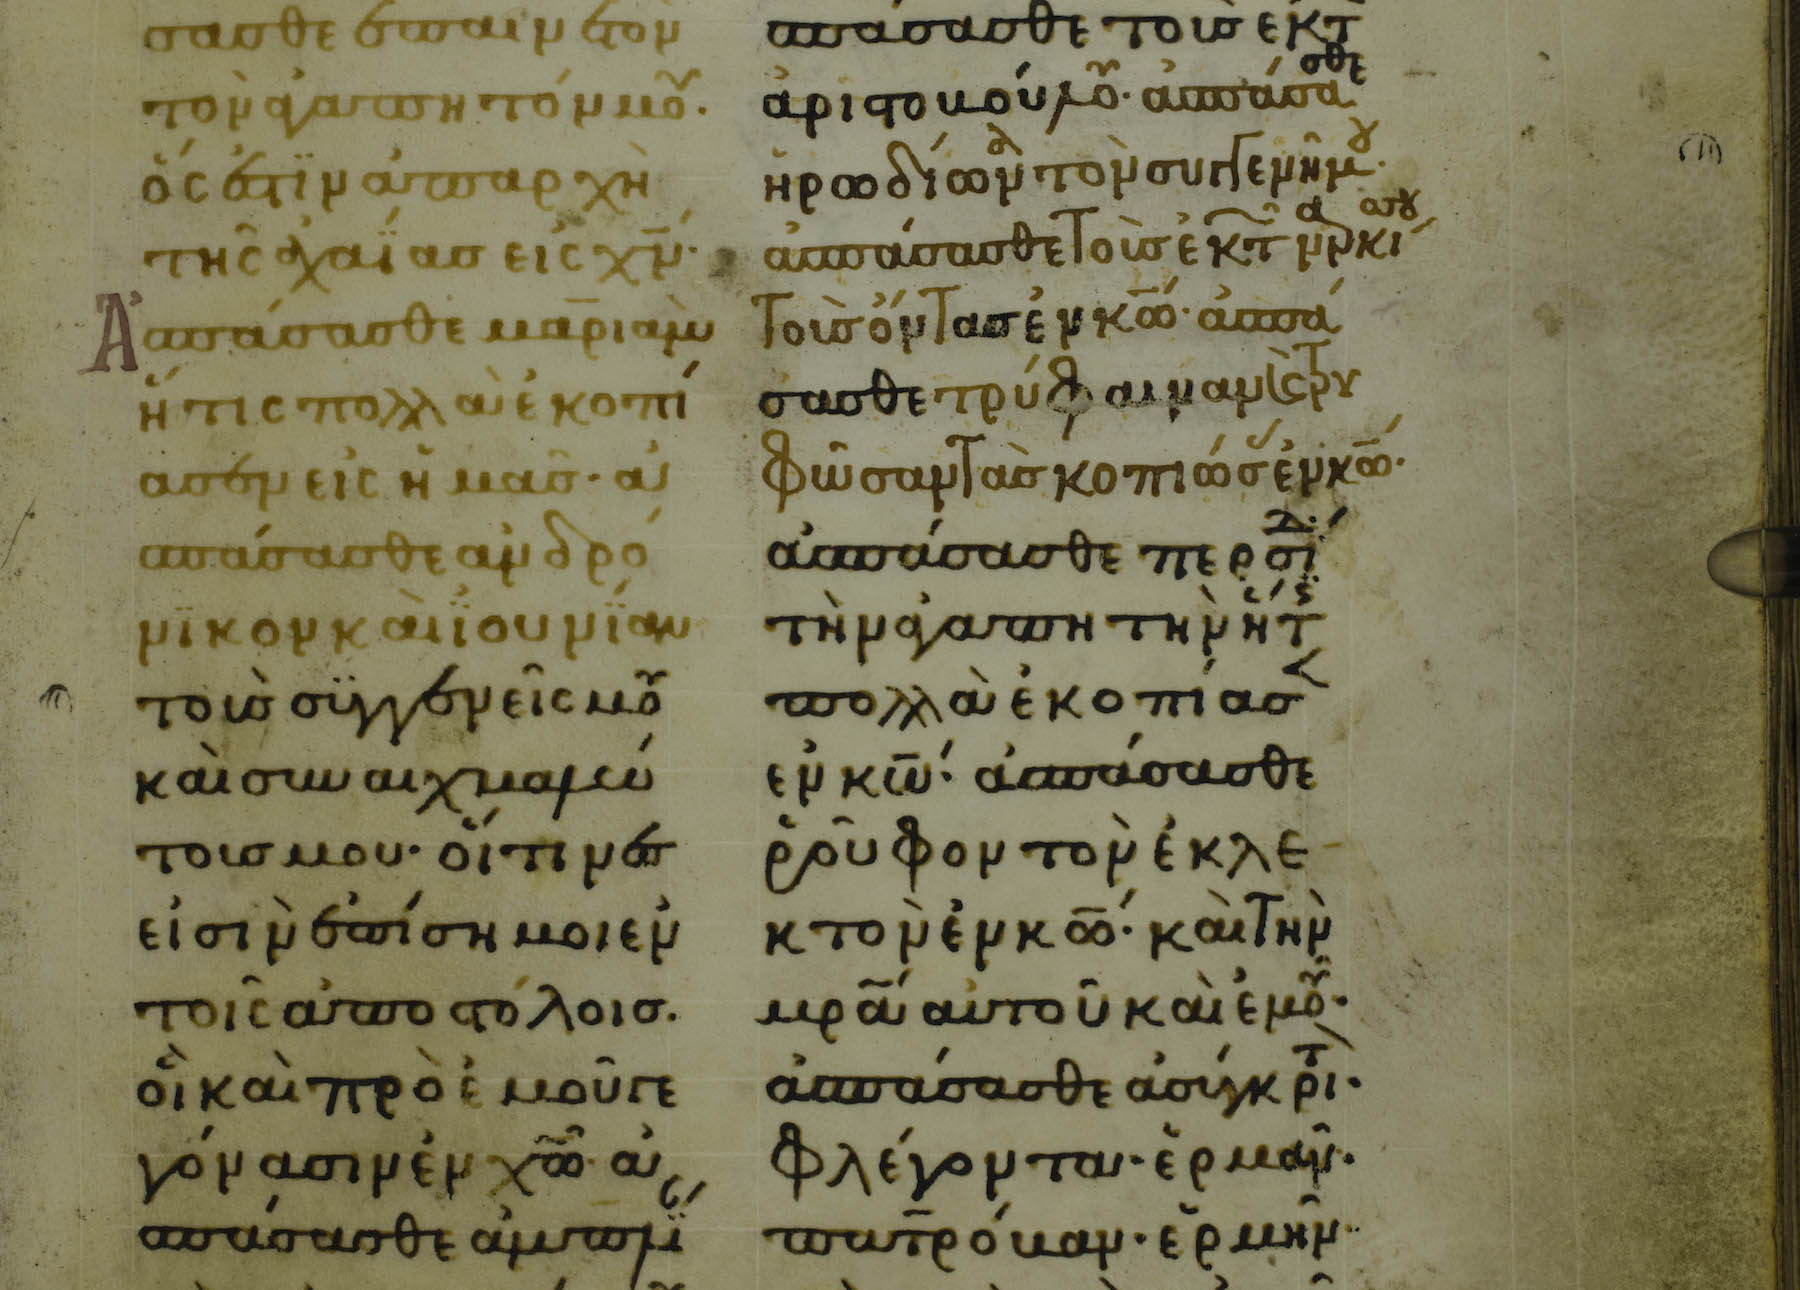 σασθε ἐπαινετὸν
τὸν ἀγαπητόν μοῦ·
ὅς ἐστϊν ἀπαρχὴ
τῆς ἀχαΐας εἰς χν·
Ἀσπάσασθε μαριὰμ
ἥτις πολλὰ ἐκοπί
ασεν εἰς ἡμᾶς· ἀ
σπάσασθε ἀνδρό
νϊκον καὶ ϊουνίαν
τοὺς συγγενεῖς μοῦ
καὶ συναιχμαλώ
τους μου· οἵτινές
εἰσὶν ἐπίσημοι ἐν
τοῖς ἀποστόλοις·
οἳ καὶ πρὸ ἐμοῦ γε
γόνασιν ἐν χω· ἀ
σπάσασθε ἀμπλϊ
ασπάσασθε τοὺς ἐκ τ
ἀριστοβούλοῦ· ἀσπάσασθε
ἡρωδίωνα τὸν συγγενῆ μου·
ἀσπάσασθε τοὺς ἐκ τ ναρκί
τοὺς ὄντας ἐν κω· ἀσπά
σασθε τρύφαιναν κς τρυ
φῶσαν τὰς κοπιώσας ἐν κω·
ἀσπάσασθε περσίδ
τὴν ἀγαπητὴν ἥτις
πολλὰ ἐκοπίασ
ἐν κω· ἀσπάσασθε
ῥοῦφον τὸν ἐκλε
κτὸν ἐν κω· καὶ τὴν
μρα αὐτοῦ καὶ ἐμοῦ·
ἀσπάσασθε ἀσύγκριτ·
φλέγοντα· ἑρμᾶν·
πατρόβαν· ἑρμῆν·